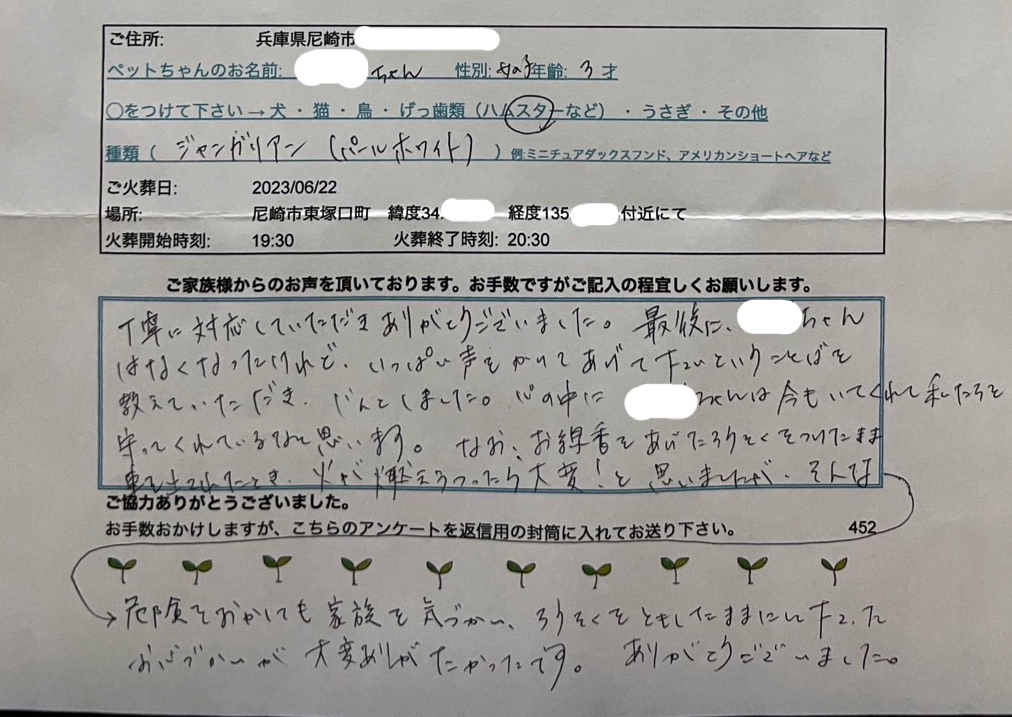 ご住所: 兵庫県尼崎市
ペットちゃんのお名前: ちゃん 性別: 女の子 年齢: 3 才
〇をつけて下さい→犬・猫・鳥・げっ歯類（ハムスターなど）・うさぎ・その他
種類（ ジャンガリアン（パールホワイト） ）例:ミニチュアダックスフンド、アメリカンショートヘアなど
ご火葬日: 2023/06/22
場所: 尼崎市東塚口町 緯度34. 経度135 付近にて
火葬開始時刻: 19:30 火葬終了時刻: 20:30
ご家族様からのお声を頂いております。お手数ですがご記入の程宜しくお願いします。
丁寧に対応していただきありがとうございました。最後に、 ちゃん
はなくなったけれど、いっぱい声をかけてあげて下さいということばを
教えていただき、じんとしました。心の中に ちゃんは今もいてくれて私たちを
守ってくれているなと思います。なお、お線香をあげたろうそくをつけたまま
車を出したとき、火が燃えうつったら大変！と思いましたが、そんな
ご協力ありがとうございました。
お手数おかけしますが、こちらのアンケートを返信用の封筒に入れてお送り下さい。 452
→危険をおかしても家族を気づかい、ろうそくをともしたままにして下さった
お心づかいが大変ありがたかったです。ありがとうございました。